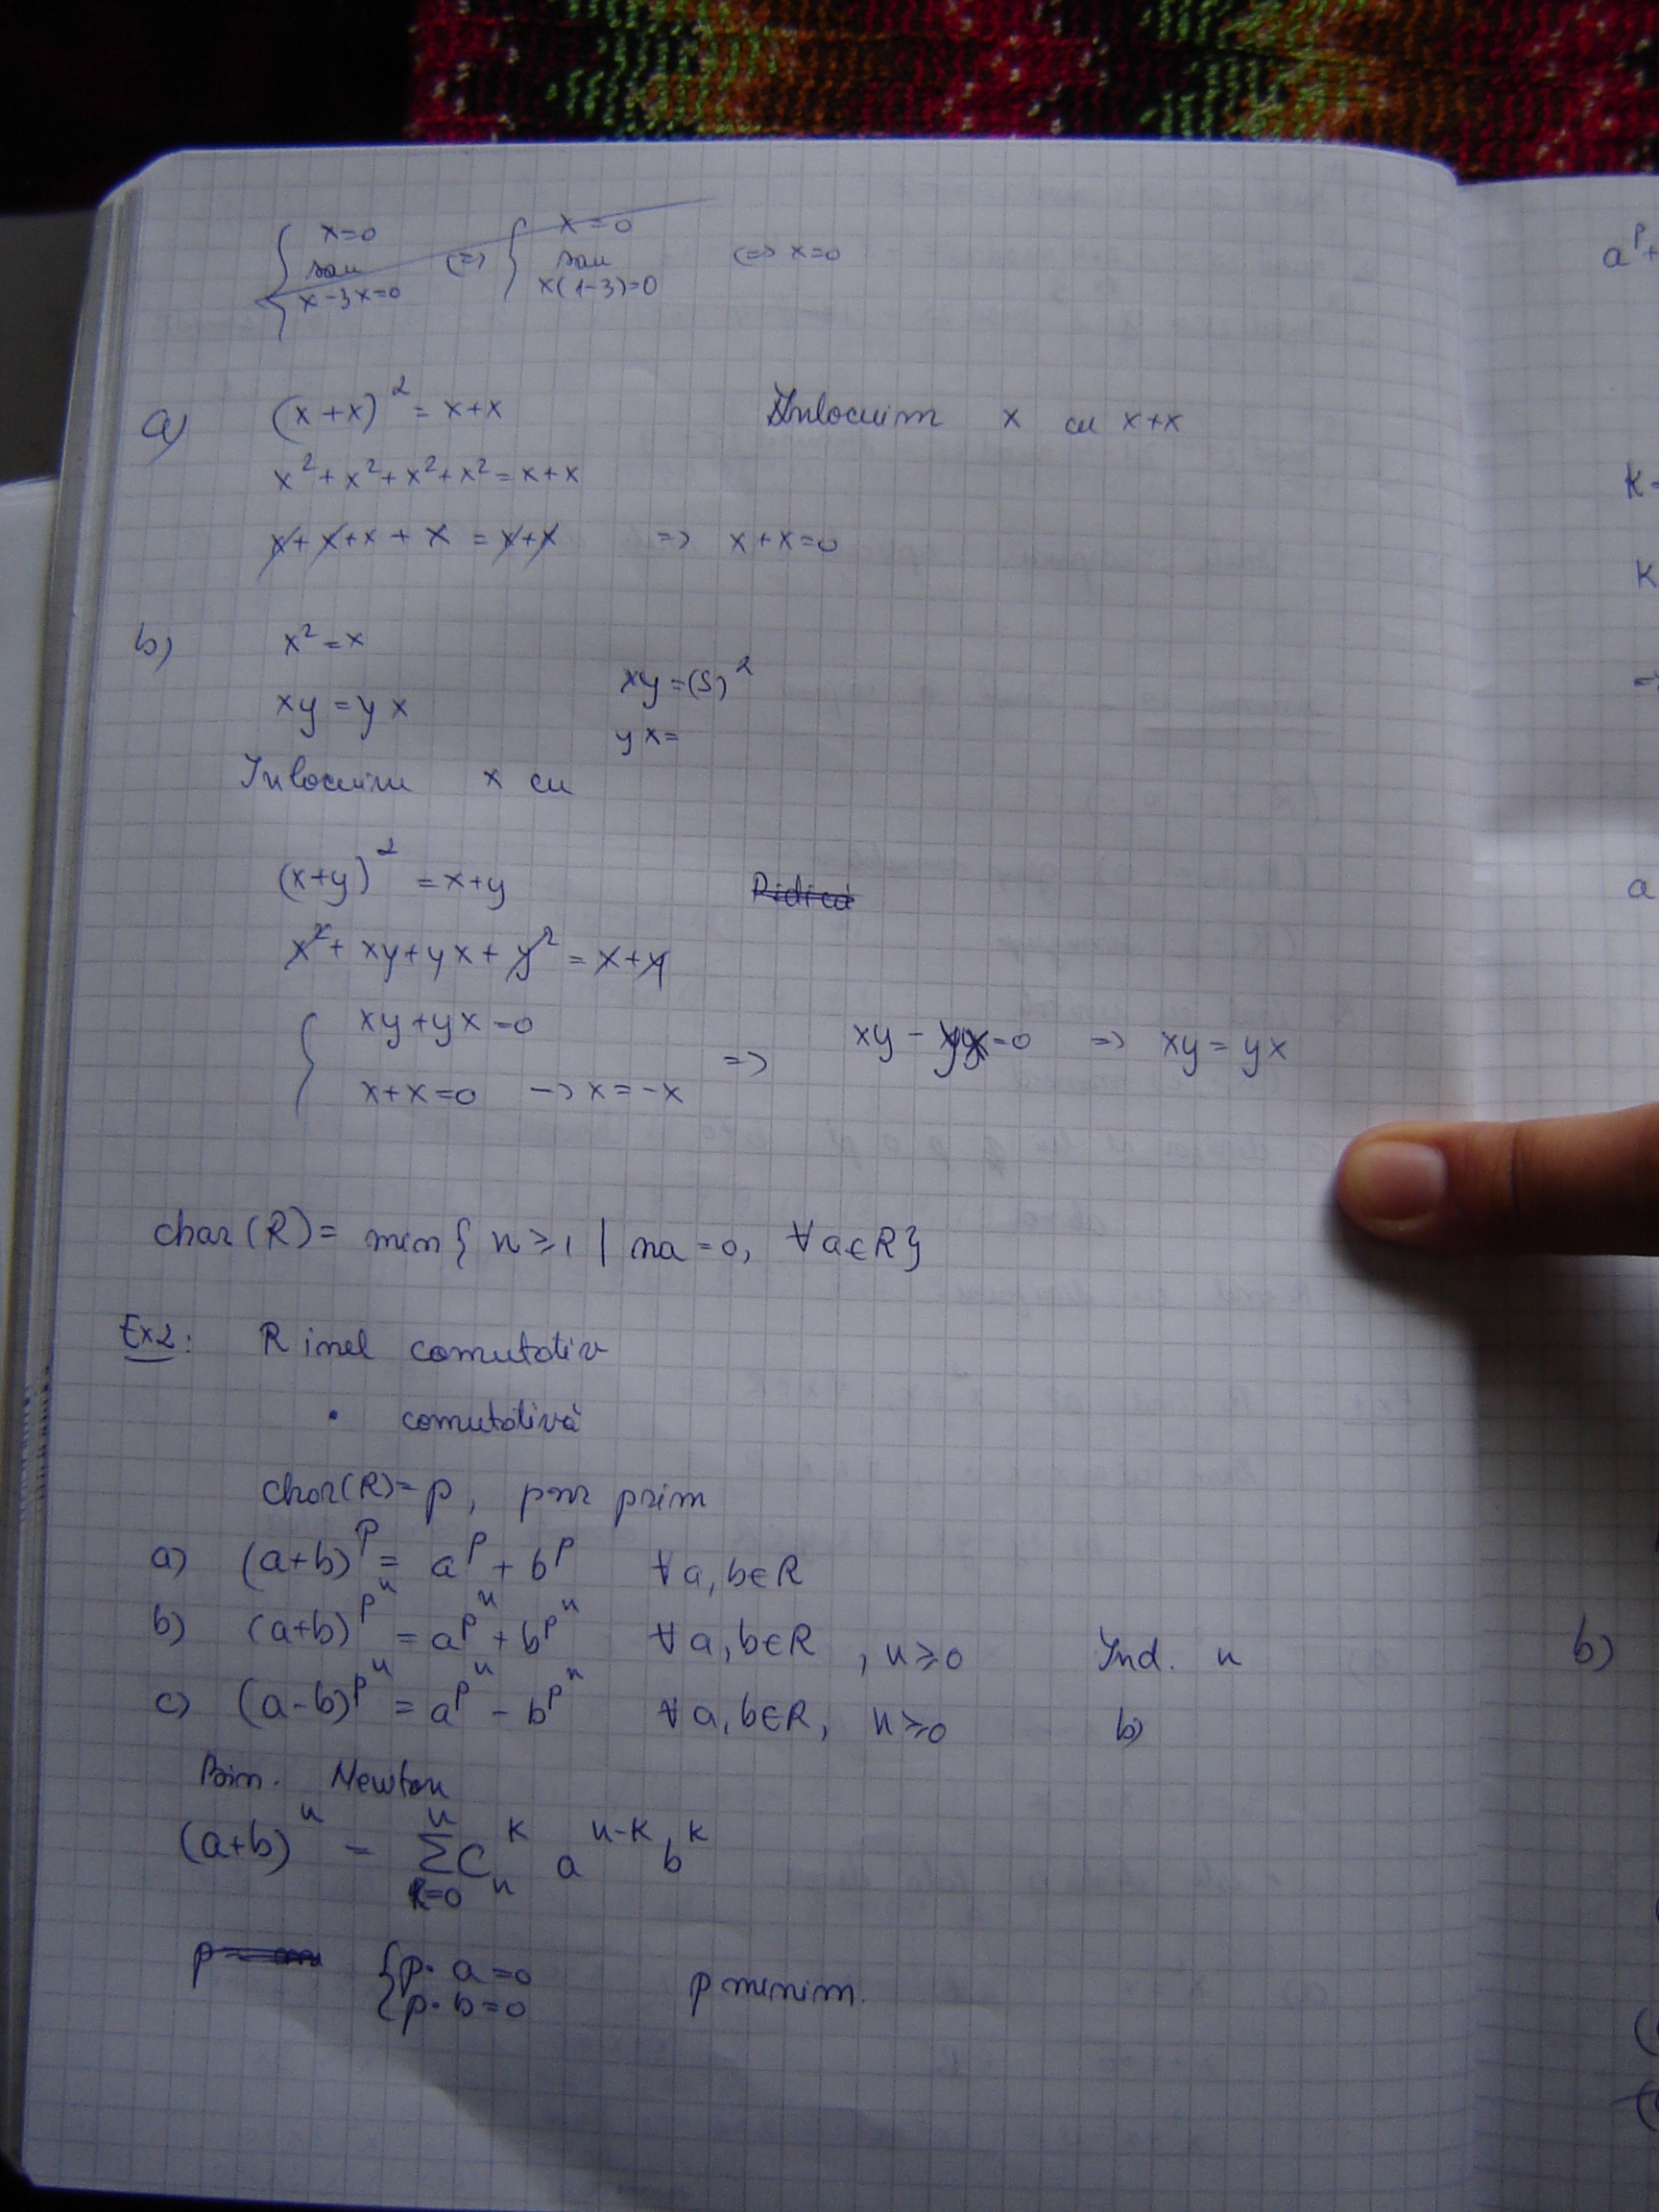 x=0 sau x-3x=0 (=> x=0 sau x(1-3)=0 (=> x=0
a) (x+x)² = x+x Inlocuim x cu x+x
x²+x²+x²+x²=x+x
x+x+x+x = x+x => x+x=0
b) x²=x
xy=yx xy=(S)²
yx=
Inlocuim x cu
(x+y)² = x+y Ridică
x²+xy+yx+y² = x+y
xy+yx=0
=> xy-yx=0 => xy=yx
x+x=0 -> x=-x
char(R)= min{ n≥1 | na=0, ∀a∈R}
Ex2: R inel comutativ
• comutativă
char(R)=p, pnr prim
a) (a+b)^p = a^p + b^p ∀a,b∈R
b) (a+b)^p^n = a^p^n + b^p^n ∀a,b∈R , n≥0 Ind. n
c) (a-b)^p^n = a^p^n - b^p^n ∀a,b∈R, n≥0 b)
Bin. Newton
(a+b)^n = Σ_{k=0}^{n} C_n^k a^{n-k} b^k
p· a=0
p minim.
p· b=0
a^p+
k-
k
=>
a
b)